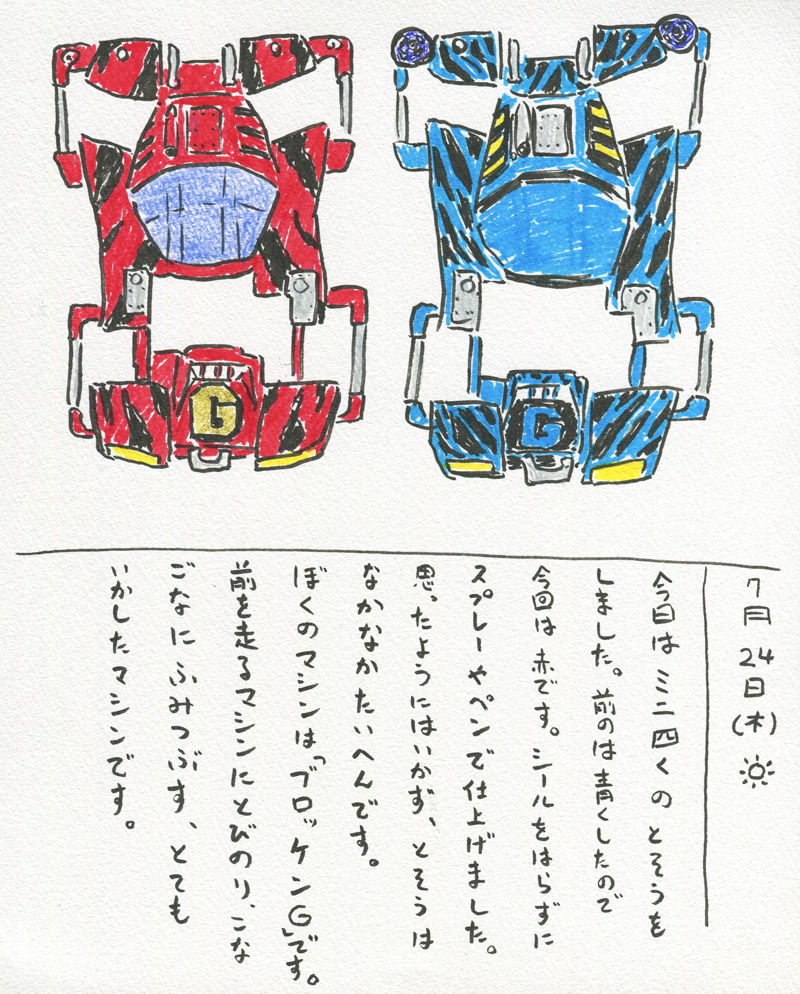 G
G
7月24日(木)
今日はミニ四くのとそうを
しました。前のは青くしたので
今回は赤です。シールをはらずに
スプレーやペンで仕上げました。
思ったようにはいかず、とそうは
なかなかたいへんです。
ぼくのマシンは「ブロッケンG」です。
前を走るマシンにとびのり、こな
ごなにふみつぶす、とても
いかしたマシンです。